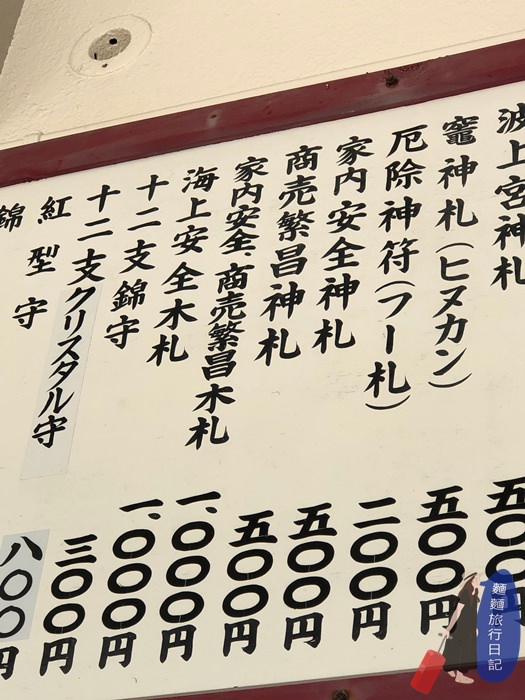 波上宮神札 五〇〇円
竈神札(ヒヌカン) 五〇〇円
厄除神符(フー札) 二〇〇円
家内安全神札 五〇〇円
商売繁昌神札 五〇〇円
家内安全、商売繁昌木札 一、〇〇〇円
海上安全木札 一、〇〇〇円
十二支錦守 三〇〇円
十二支クリスタル守 八〇〇円
紅型守
錦
麵麵旅行日記